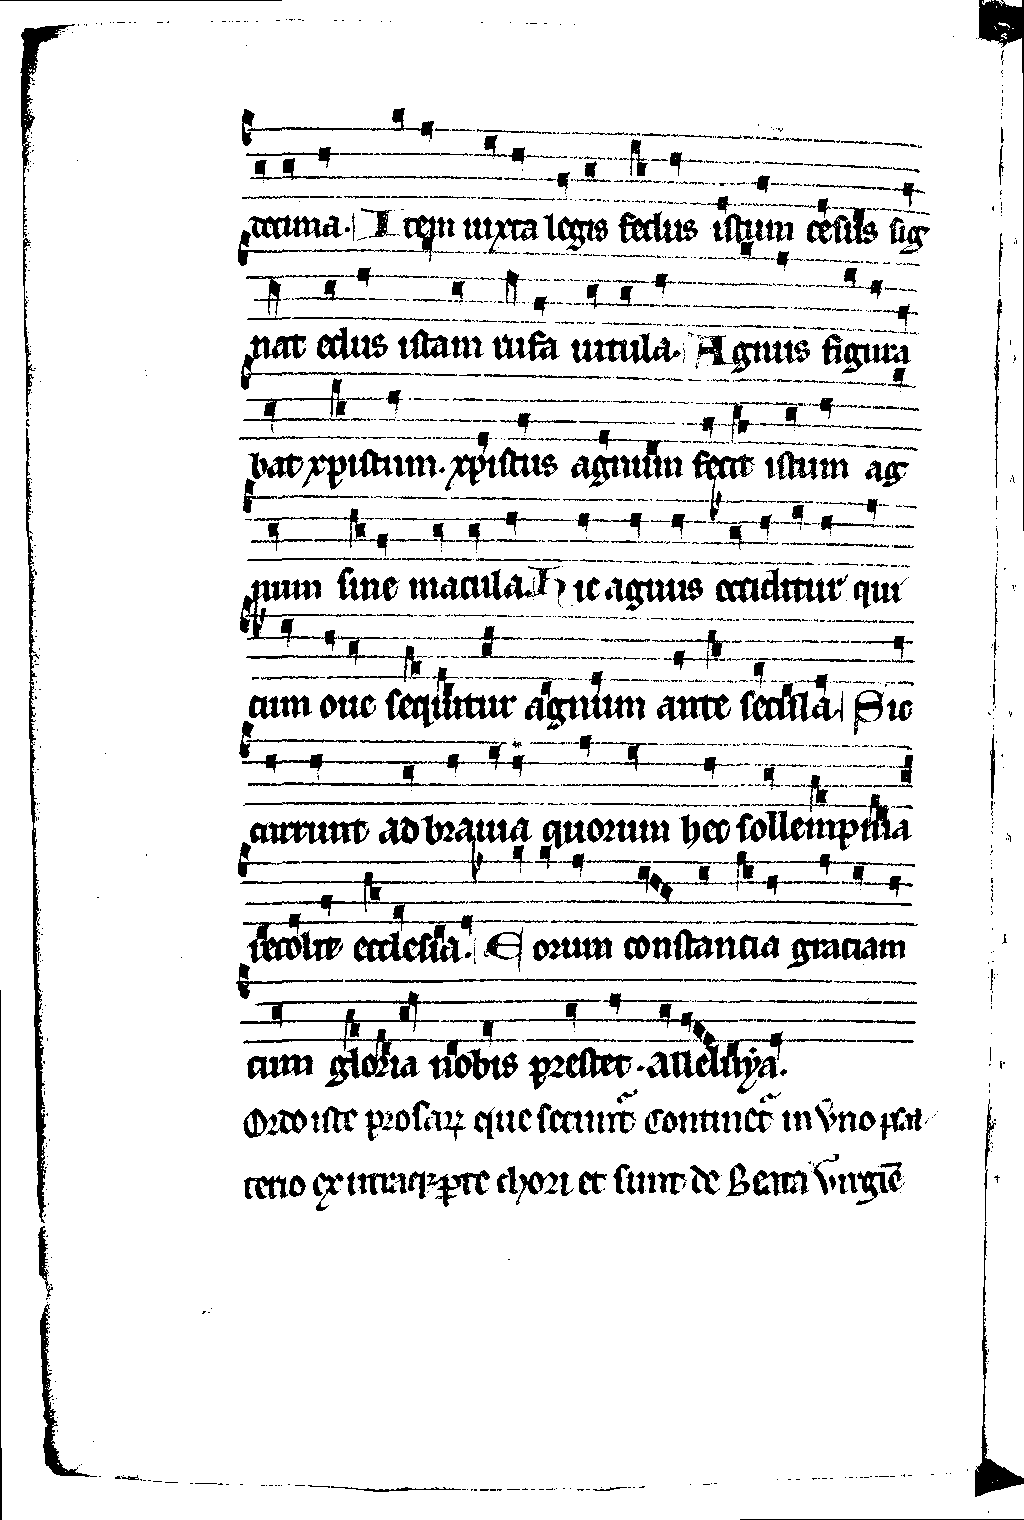 decima. Item iuxta legis fedus istum cesus sig
nat edus istam rufa uitula. Agnus figura
bat xpistum. xpistus agnum fecit istum ag
num sine macula. Hic agnus occiditur qui
cum oue sequitur agnum ante secula. Sic
currunt ad brauia quorum hec sollempnia
recolit ecclesia. Eorum constancia graciam
cum gloria nobis prestet. alleluya.
Ordo iste prosarꝝ que secunt᷑ continet᷑ in vno psal
terio ex utraqꝫ ꝑte chori et sunt de Beata virgīe